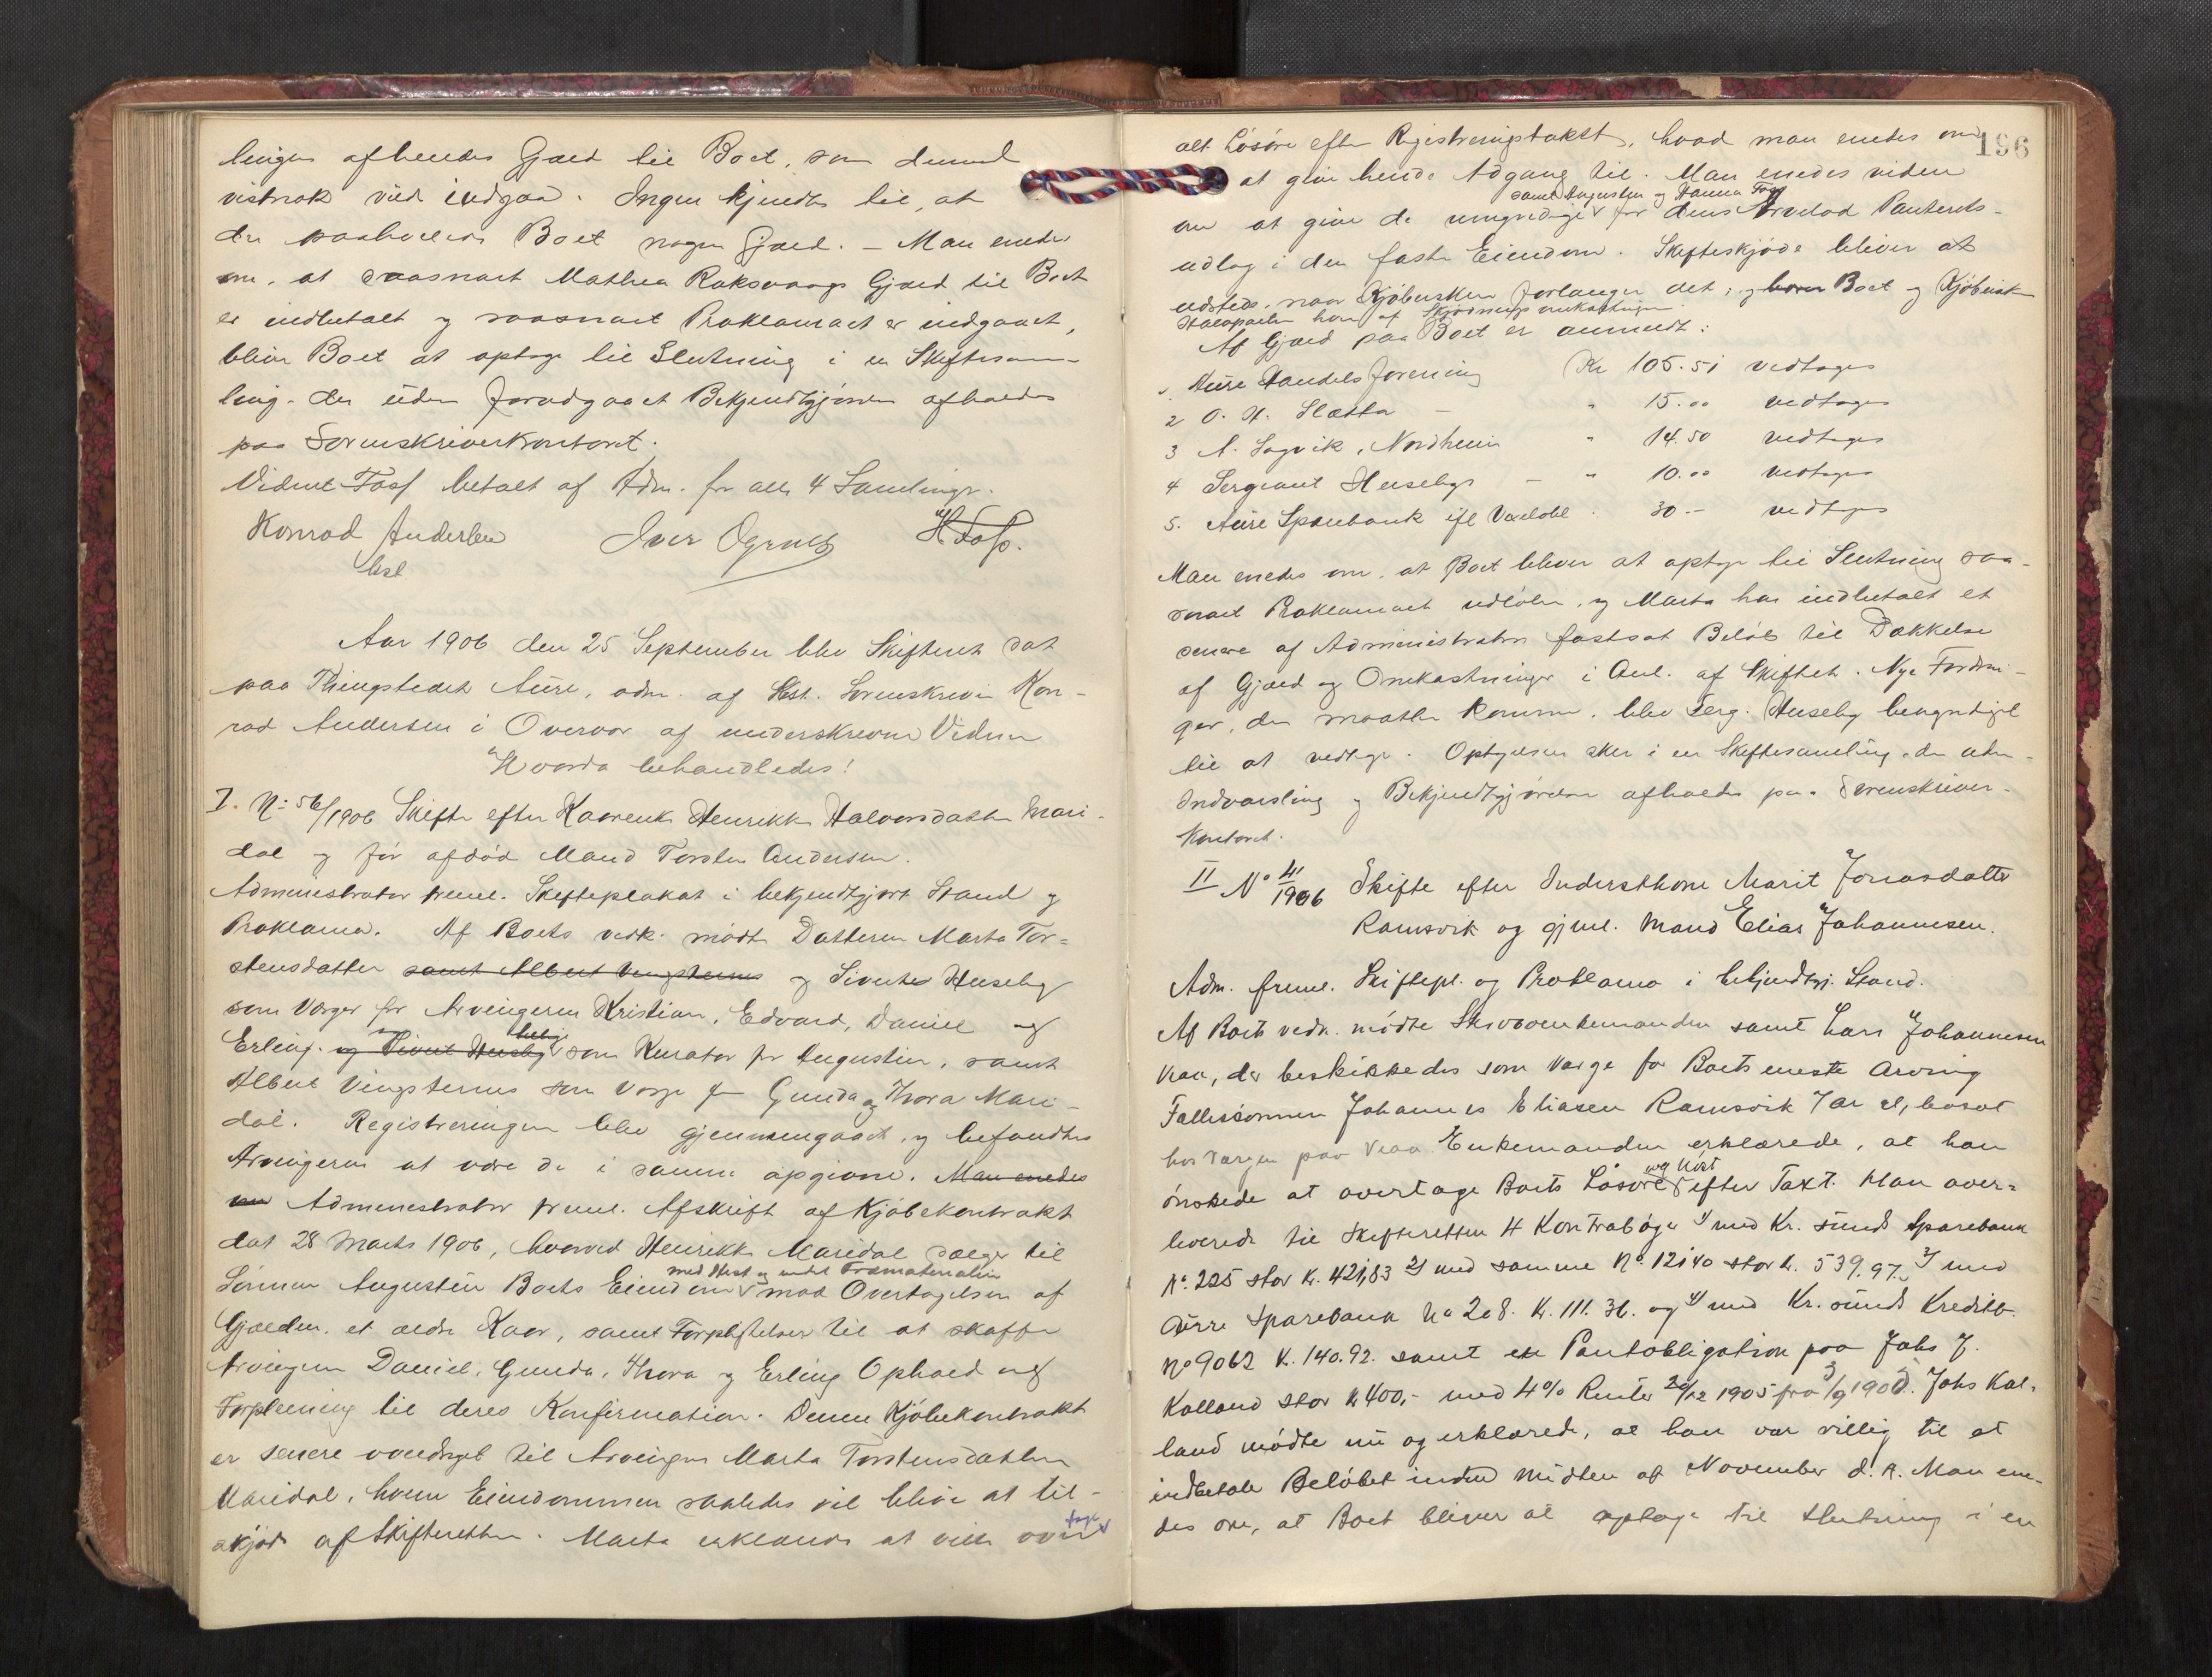 lingen afhendes Gjæld til Boet, som dermed
vistnok vil indgaa. Ingen kjendte til, at
der paahvilede Boet nogen Gjæld. – Man enedes
om, at saasnart Mathea Roksvaags Gjæld til Boet
er indbetalt og saasnart Proklamaet er indgaaet,
bliver Boet at optage til Slutning i en Skiftesam-
ling, der uden forudgaaet Bekjendtgjørelse afholdes
paa Sorenskriverkontoret.
Vidnet Foss betalt af Adm. for alle 4 Samlinger.
Konrad Andersen Iver Ogrness H. Foss.
bst
Aar 1906 den 25 September blev Skifteret sat
paa Thingstedet Aure, adm. af Kst. Sorenskriver Kon-
rad Andersen i Overvær af underskrevne Vidner
Hvorda behandledes:
I. No 56/1906 Skifte efter Kaarenke Henrikke Halvorsdatter Mari-
dal og før afdød Mand Torsten Andersen.
Administrator freml. Skifteplakat i bekjendtgjort Stand og
Proklama. Af Boets vedk. mødte Datteren Marta Tor-
stensdatter samt Albert Vingsternes og Sivert Huseby
som Verger for Arvingerne Kristian, Edvard, Daniel og
Erling. og Sivert Huseby som Kurator for Augustin, samt
Albert Vingsternes som Verge for Gunda og Thora Mari-
dal. Registreringen blev gjennemgaaet, og befandtes
Arvingerne at være de i samme opgivne. Man enedes
om Administrator freml. Afskrift af Kjøbekontrakt
dat 28 Marts 1906, hvorved Henrikke Maridal sælger til
med Hest og endel Træmaterialier
Sønnen Augustin Boets Eiendom mod Overtagelsen af
Gjælden, et ældre Kaar, samt Forpligtelser til at skaffe
Arvingerne Daniel, Gunda, Thora og Erling Ophold og
Forpleining til deres Konfirmation. Denne Kjøbekontrakt
er senere overdraget til Arvingen Marta Torstensdatter
Maridal, hvem Eiendommen saaledes vil blive at til-
skjøde af Skifteretten. Marta erklærede at ville over
tage
196
alt Løsøre efter Registreringstakst, hvad man enedes om
at give hende Adgang til. Man enedes videre
samt Augustin og Hanna Foss
om at give de umyndige for deres Arvelod Panterets-
udlæg i den faste Eiendom. Skifteskjøde bliver at
udstede, naar Kjøbersken forlanger det, og bærer Boet og Kjøbersken
Halvparten hver af Skjødningsomkostninger
Af Gjæld paa Boet er anmeldt:
1. Aure Handelsforening Kr 105.51 vedtages
2 O. H. Sletta – " 15.00 vedtages
3 A. Sagvik, Nordheim " 14.50 vedtages
4 Sergeant Huseby – " 10.00 vedtages
5. Aure Sparebank ifl Vexelobl. 30.– vedtages
Man enedes om, at Boet bliver at optage til Slutning saa-
snart Proklamaet udløber, og Marta har indbetalt et
senere af Administrator fastsat Beløb til Dækkelse
af Gjæld og Omkostninger i Anl. af Skiftet. Nye Fordrin-
ger, der maatte komme, blev Serg. Huseby bemyndiget
til at vedtage. Optagelsen sker i en Skiftesamling, der uden
Indvarsling og Bekjendtgjørelse afholdes paa Sorenskriver-
kontoret.
II No 41/1906 Skifte efter Inderstkone Marit Jonasdatter
Ramsvik og gjenl. Mand Elias Johannesen.
Adm. freml. Skiftepl. og Proklama i bekjendtgj. Stand.
Af Boets vedk. mødte Enkemanden samt Lars Johannesen
Kaa, der beskikkedes som Verge for Boets eneste Arving
Fællessønnen Johannes Eliasen Ramsvik 7 Aar gl, bosat
hos Vergen paa Kaa Enkemanden erklærede, at han
ønskede at overtage Boets Løsøre og Høst efter Taxt. Han over-
leverede til Skifteretten 4 Kontrabøger 1) med Kr. sunds Sparebank
No. 225 stor k. 421,83 2) med samme No. 12140 stor k. 539.97. 3) med
Aure Sparebank No 208. k. 111.36. og 4) med Kr. sunds Kreditb.
No 9062 k. 140.92. samt en Pantobligation paa Johs J.
Kalland stor k 400,- med 4% Renter 20/12 1905 fra 3/9 1905. Johs Kal-
land mødte nu og erklærede, at han var villig til at
indbetale Beløbet inden Midten af November d. A. Man ene-
des om, at Boet bliver at optage til Slutning i en